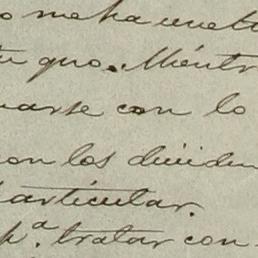 o me ha vuelt
quo. Miéntr
arse con lo
on los dividen
articular.
pª. tratar con